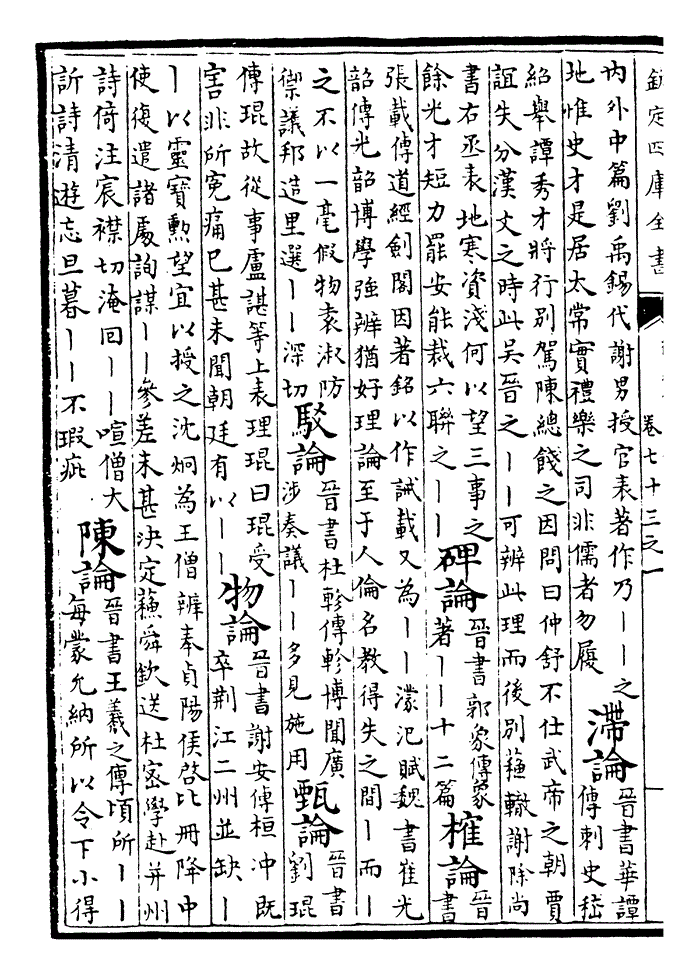 欽定四庫全書
卷七十三之一
内外中篇劉禹錫代謝男授官表著作乃丨丨之
地惟史才是居太常實禮樂之司非儒者勿履
滯論
晉書華譚
傳刺史嵇
紹舉譚秀才將行别駕陳總餞之因問曰仲舒不仕武帝之朝賈
誼失分漢文之時此吳晉之丨丨可辨此理而後别蘇轍謝除尚
書右丞表地寒資淺何以望三事之
餘光才短力罷安能裁六聯之丨丨
碑論
晉書郭象傳象
著丨丨十二篇
榷論
晉
書
張載傳道經劍閣因著銘以作誡載又為丨丨濛汜賦魏書崔光
韶傳光韶博學強辨猶好理論至于人倫名教得失之間丨而丨
之不以一毫假物袁淑防
禦議邦造里選丨丨深切
駁論
晉書杜軫傳軫博聞廣
涉奏議丨丨多見施用
甄論
晉書
劉琨
傳琨故從事盧諶等上表理琨曰琨受
害非所寃痛已甚未聞朝廷有以丨丨
物論
晉書謝安傳桓沖既
卒荆江二州並缺丨
丨以靈寶勲望宜以授之沈炯為王僧辨奉貞陽侯啓比册降中
使復遣諸處詢謀丨丨參差未甚決定蘇舜欽送杜密學赴并州
詩倚注宸襟切淹回丨丨喧僧大
訢詩清遊忘旦暮丨丨不瑕疵
陳論
晉書王羲之傳頃所丨丨
每蒙允納所以令下小得